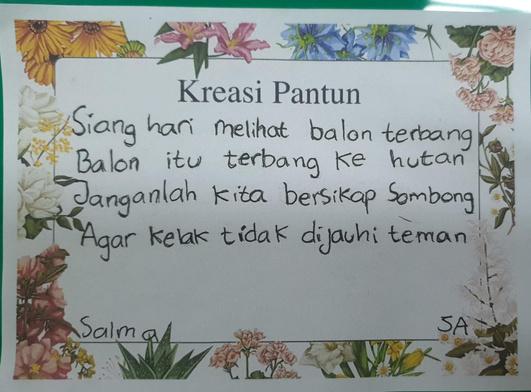 Kreasi Pantun
Siang hari melihat balon terbang
Balon itu terbang ke hutan
Janganlah kita bersikap Sombong
Agar kelak tidak dijauhi teman
Salma
5A